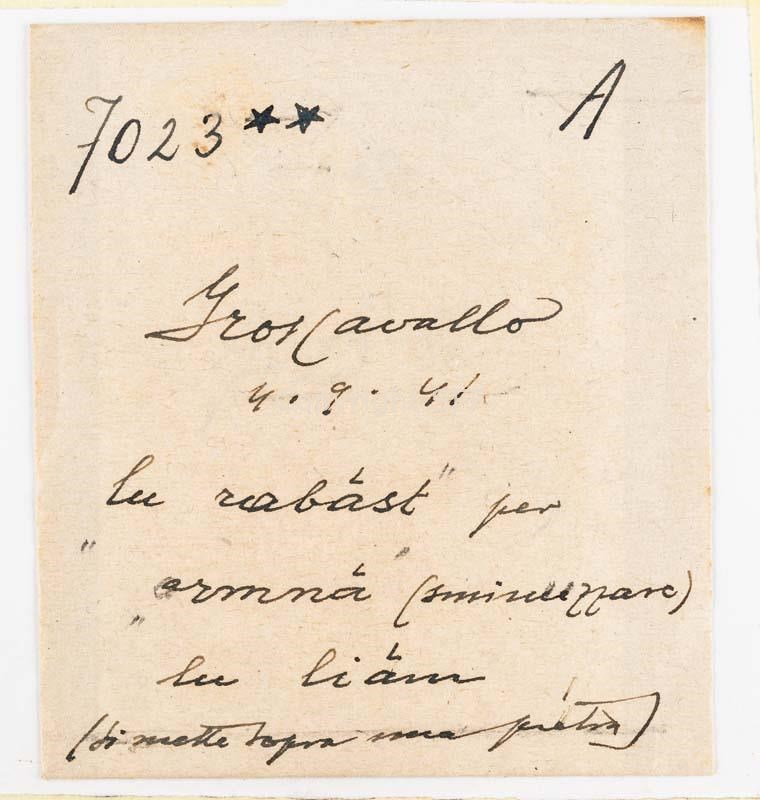 7023** A
Groscavallo
4.9.41.
lu rabást" per
"
"ermná" (sminuzzare)
lu liám
(si mette sopra una pietra)